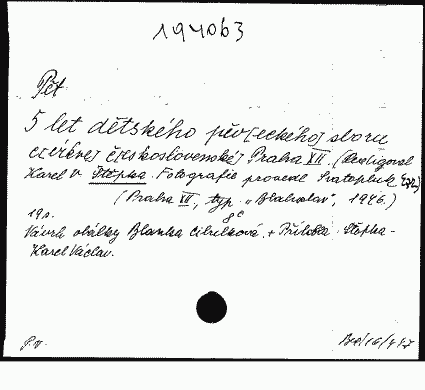 194063
Pět
5 let dětského pěv[eckého] sboru
c[írkve] č[eskoslovenské] Praha XII. (Redigoval
Karel V. Štěpka. Fotografie provedl Svatopluk
(Praha XII, typ. „Blahoslav", 1946.)
8°
19 s.
Návrh obálky Blanka Cibulková. + Příloha. Štěpka-
Karel Václav.